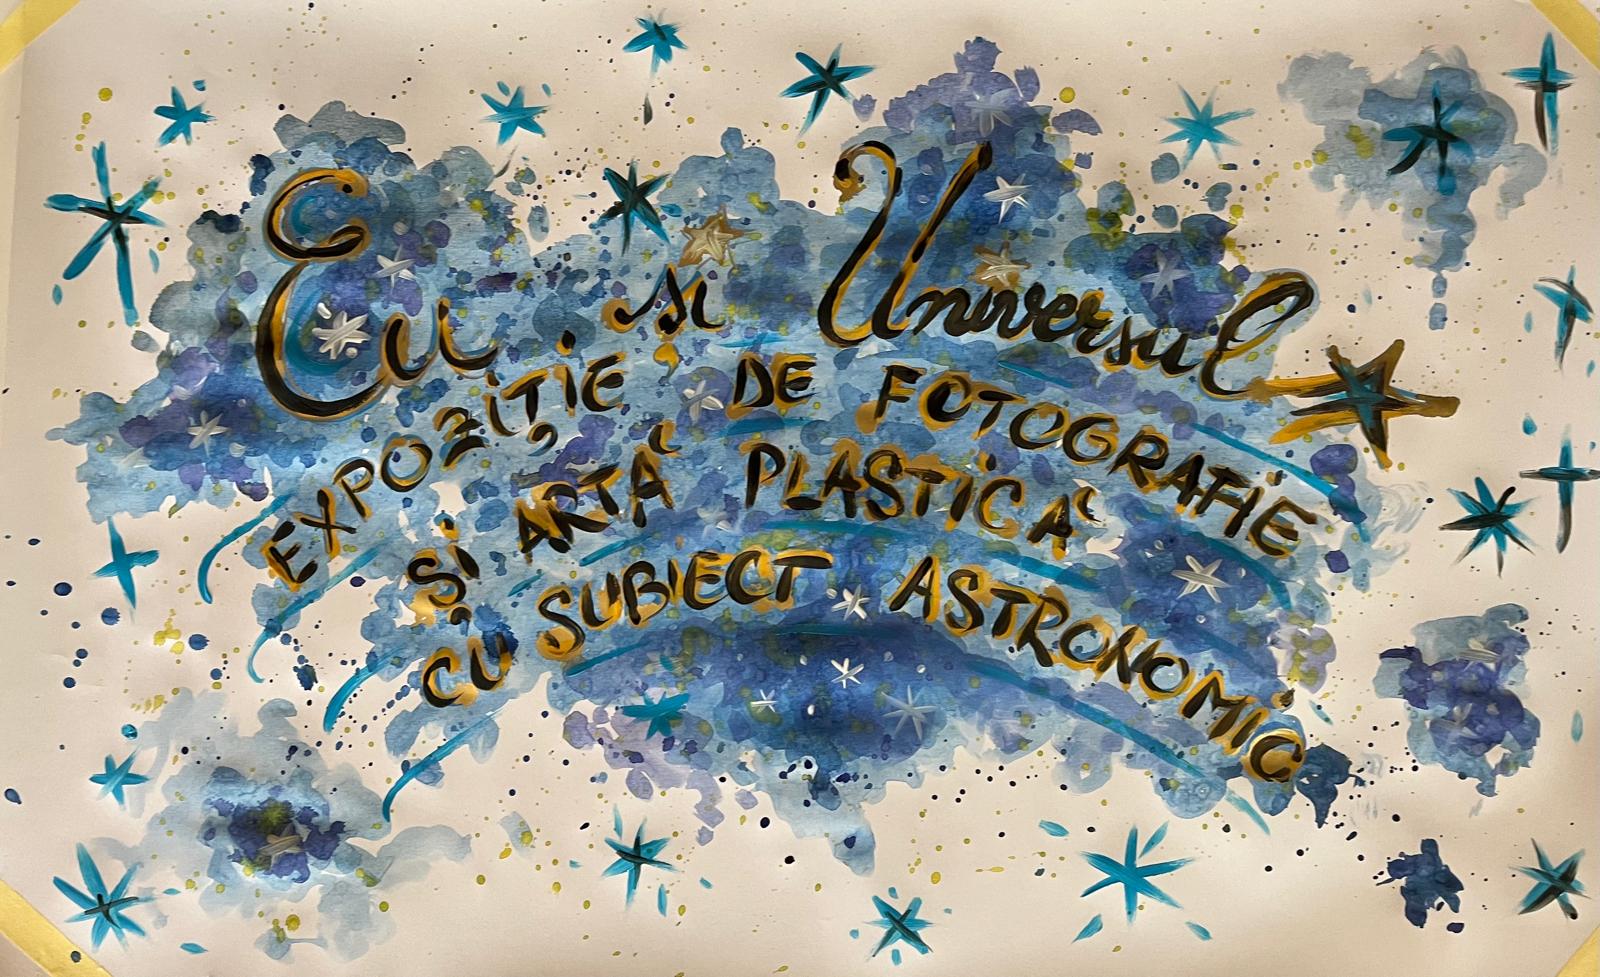 Eu și Universul
EXPOZIȚIE DE FOTOGRAFIE
ȘI ARTĂ PLASTICĂ
CU SUBIECT ASTRONOMIC